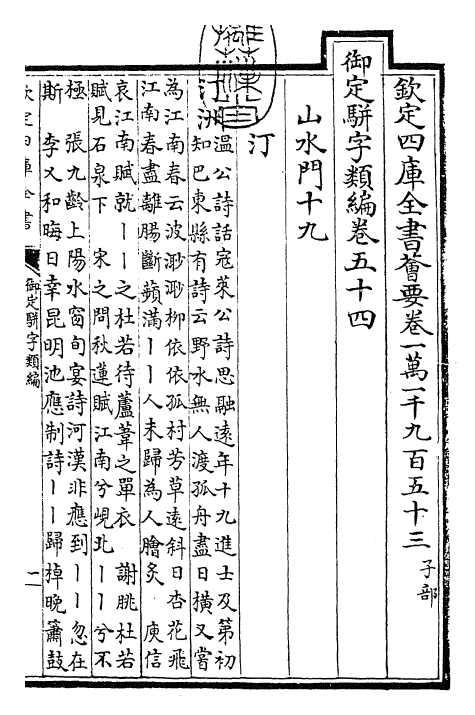 欽定四庫全書薈要卷一萬一千九百五十三 子部
御定騈字類編卷五十四
山水門十九
汀
汀洲
温公詩話寇萊公詩思融遠年十九進士及第初
知巴東縣有詩云野水無人渡孤舟盡日橫又嘗
為江南春云波渺渺柳依依孤村芳草遠斜日杏花飛
江南春盡離腸斷蘋滿丨丨人未歸為人膾炙 庾信
哀江南賦就丨丨之杜若待蘆葦之單衣 謝朓杜若
賦見石泉下 宋之問秋蓮賦江南兮峴北丨丨兮不
極 張九齡上陽水窗旬宴詩河漢非應到丨丨忽在
斯 李乂和晦日幸昆明池應制詩丨丨歸棹晚簫鼓
欽定四庫全書
御定騈字類編